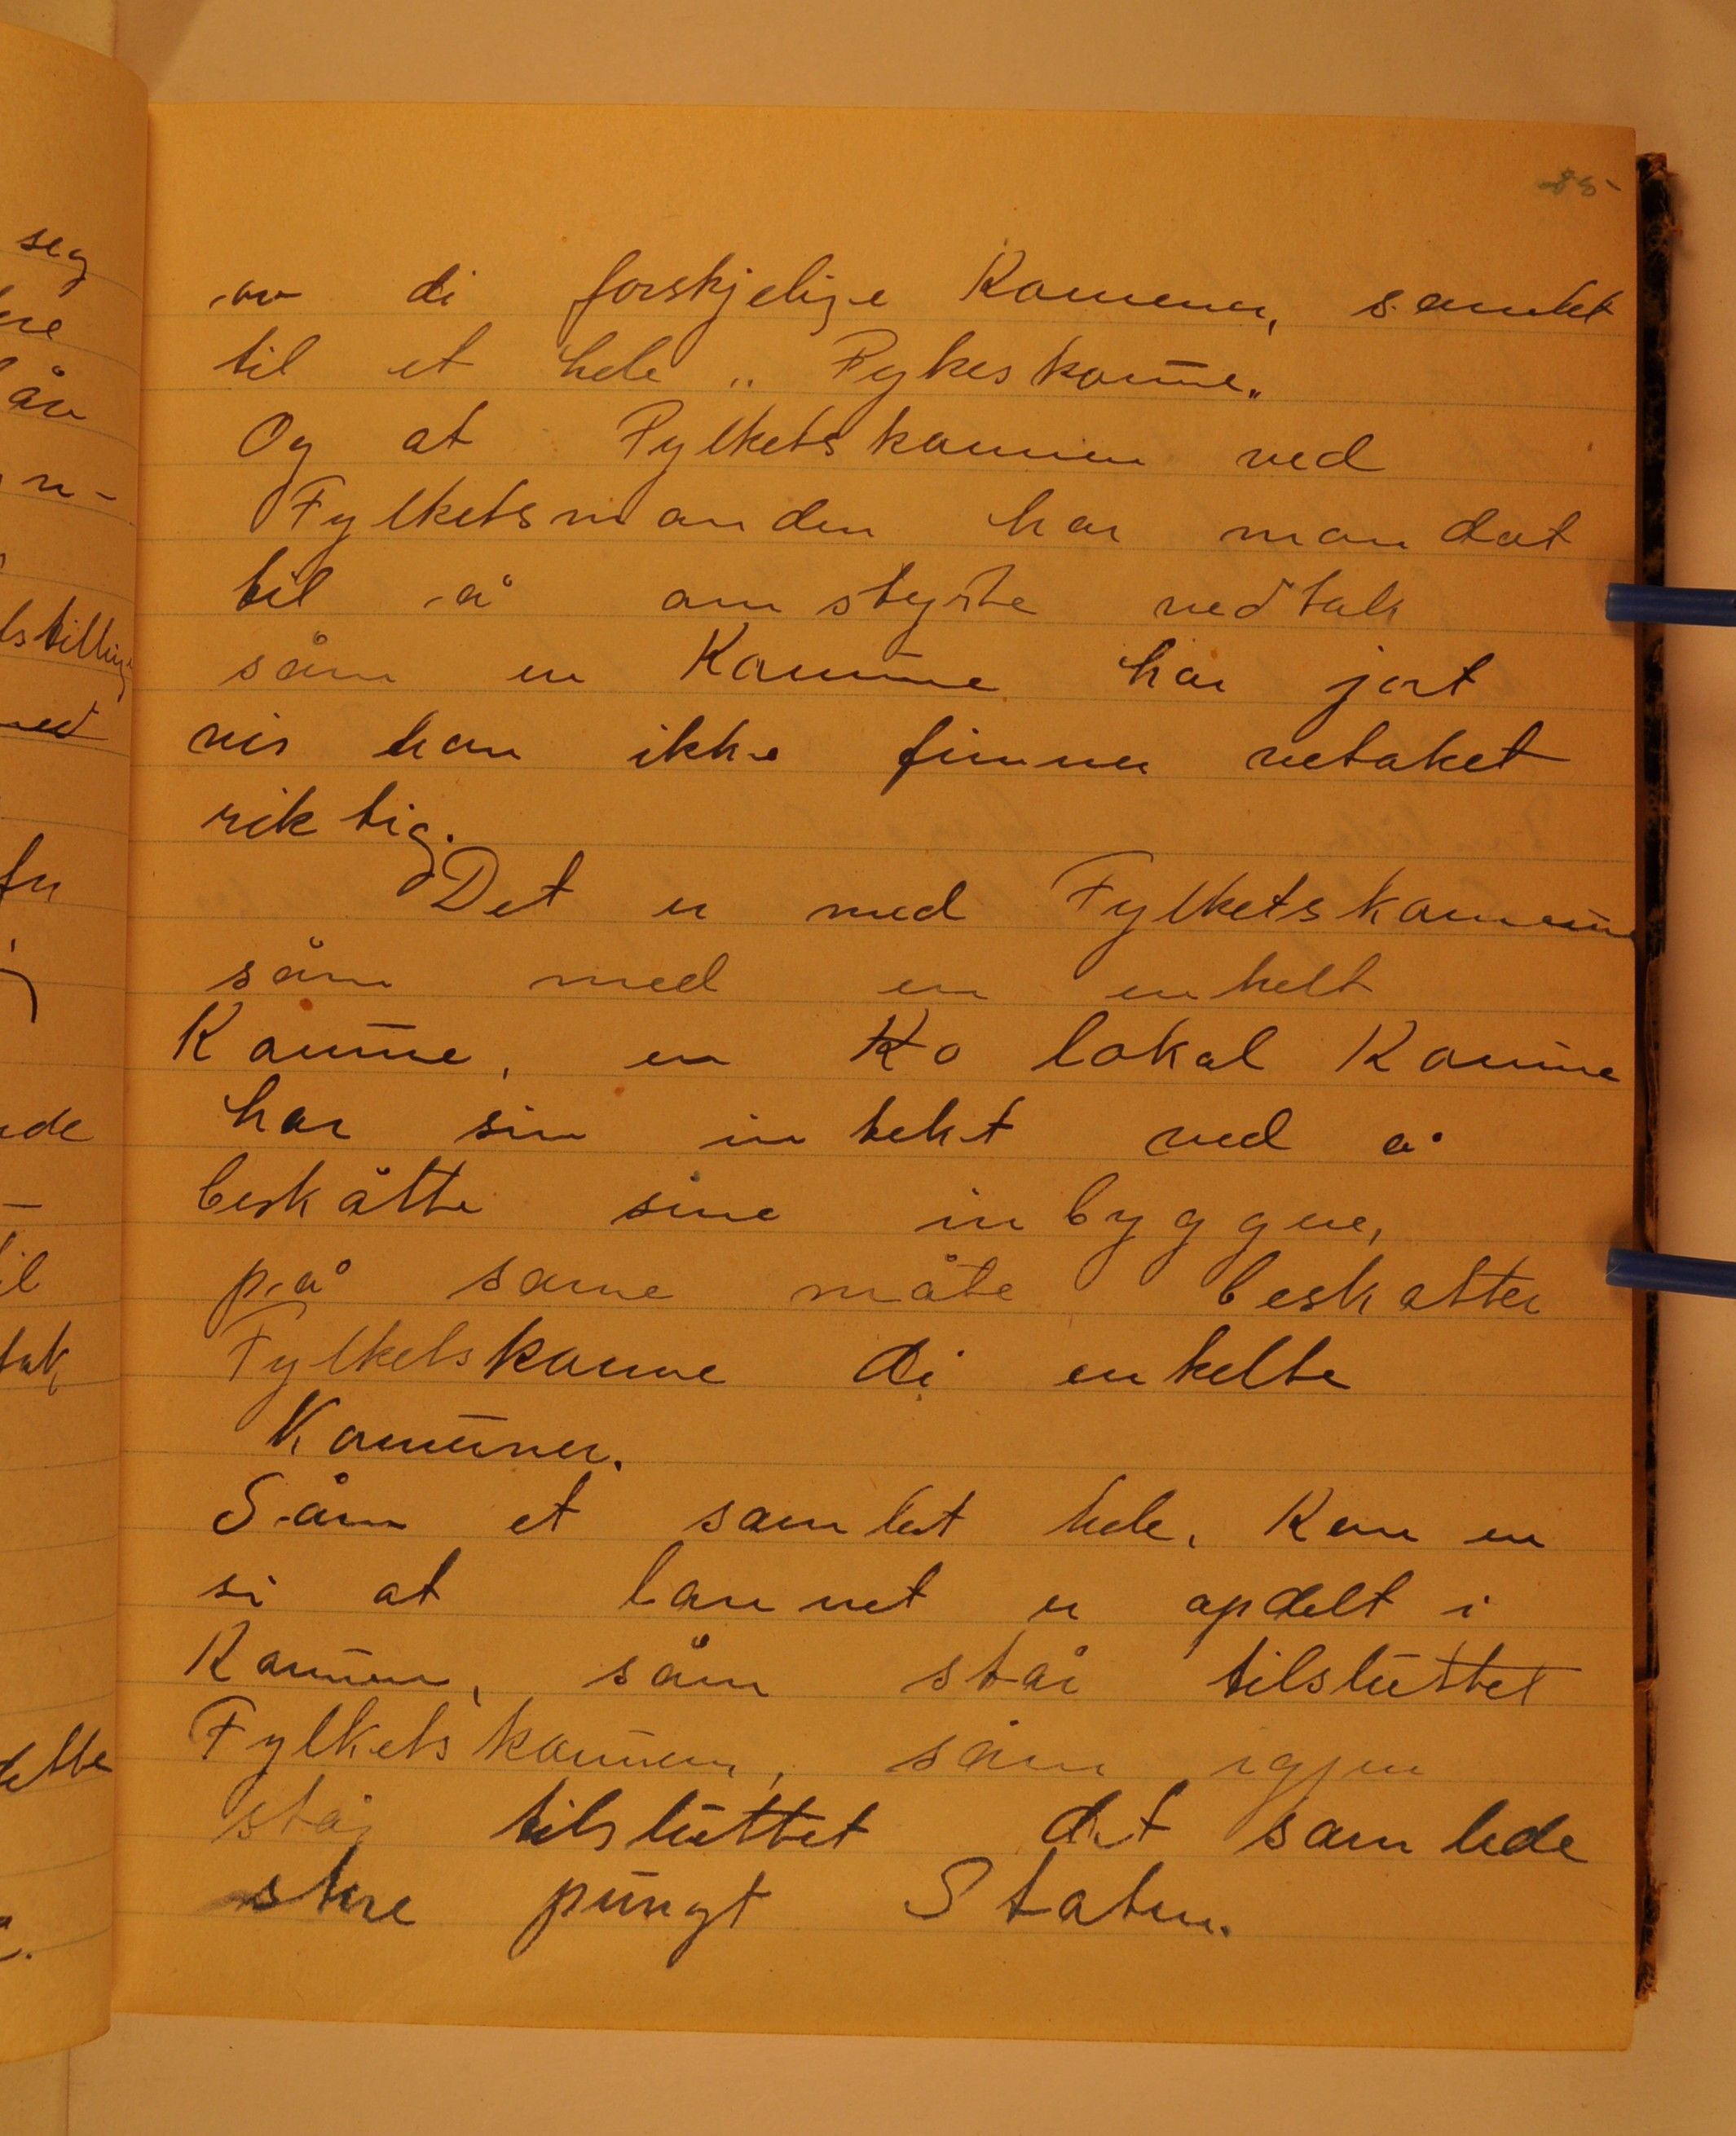 85
av di forskjelige Komuner, samlet
til et hele „Fykeskomūne„
Og at Fylketskomunen ved
Fylketsmanden har mandat
til å omstyrte vedtak
såm en Komūne har jort
vis han ikke finner vetaket
riktig.
Det er med Fylketskomūne
såm med en enkelt
Komūne, en Ko lokal Komūne
har sin intekt ved å
beskåtte sine inbyggere,
på same måte beskatter
Fylketskomune di enkelte
Komūner.
Såm et samlet hele, Kan en
si at lannet er opdelt i
Komūner, såm står tilslūttet
Fylketskomūnen, såm igjen
står tilslūttet det samlede
store pūngt Staten.